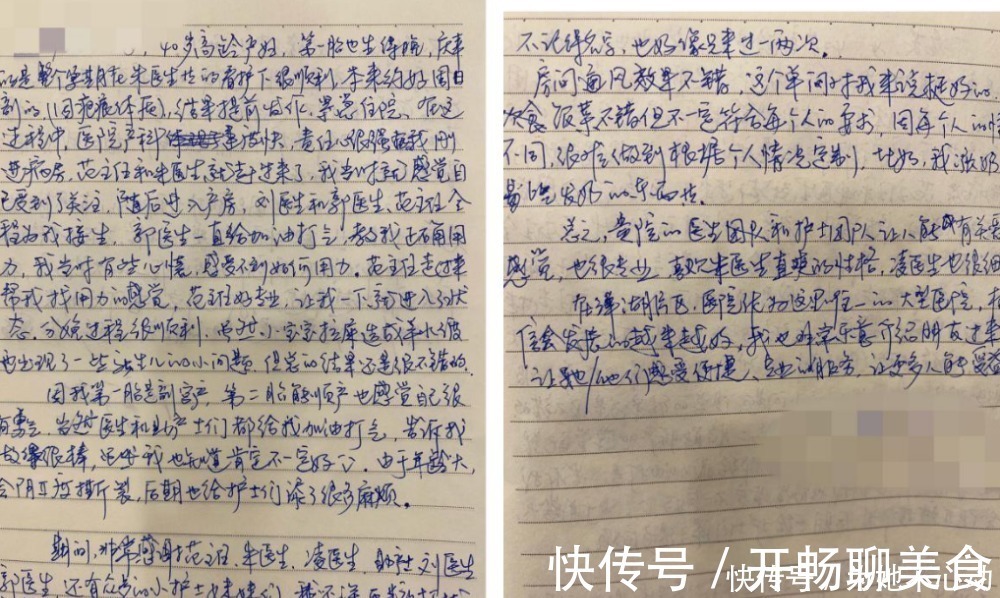 40岁高龄产妇，第一胎也生得晚，庆幸
的是整个孕期在朱医生的看护下很顺利，本来约好周日
剖的，(因疤痕体质)，结果提前发作，紧急住院。在这
过程中，医院产科速度快，责任心很强，我刚
进病房，范主任和朱医生就赶过来了，我当时就感觉自
己受到了关注，随后进入产房，刘医生和郭医生、范主任全
程为我接生，郭医生一直给加油打气，教我正确用
力，我当时有些心慌，感受不到如何用力。范主任走过来
帮我找用力的感觉，范主任好专业，让我一下就进入了状
态。分娩过程很顺利，虽然小宝宝拉屎造成羊水
也出现了一些新生儿的小问题，但总的结果还是很不错的。
因我第一胎是剖宫产，第二胎能顺产也感觉自己很
有勇气，当时医生和助产士们都给我加油打气，告诉我
做得很棒，虽然我也知道肯定不一定好。由于年龄大，
会阴II度撕裂，后期也给护士们添了很多麻烦。
期间，非常感谢范主任、朱医生、凌医生、助产士刘医生
郭医生，还有众多的小护士
不记得名字，也好像只来过一两次。
房间通风效果不错，这个单间对我来说挺好的。
饮食饭菜不错但不一定符合每个人的要求，因每个人的情
不同，很难做到根据个人情况定制，比如，我涨奶
易发奶的东西。
总之，贵院的医生团队和护士团队让人能有亲
感觉，也很专业，喜欢朱医生直爽的性格，凌医生也很细
在泽湖片区，医院作为这里唯一的大型医院，相
信会发展的越来越好，我也非常乐意介绍朋友过来
让她/他们感受便捷、专业的服务，让更多人能受益
快传号／开畅聊美食
快传号